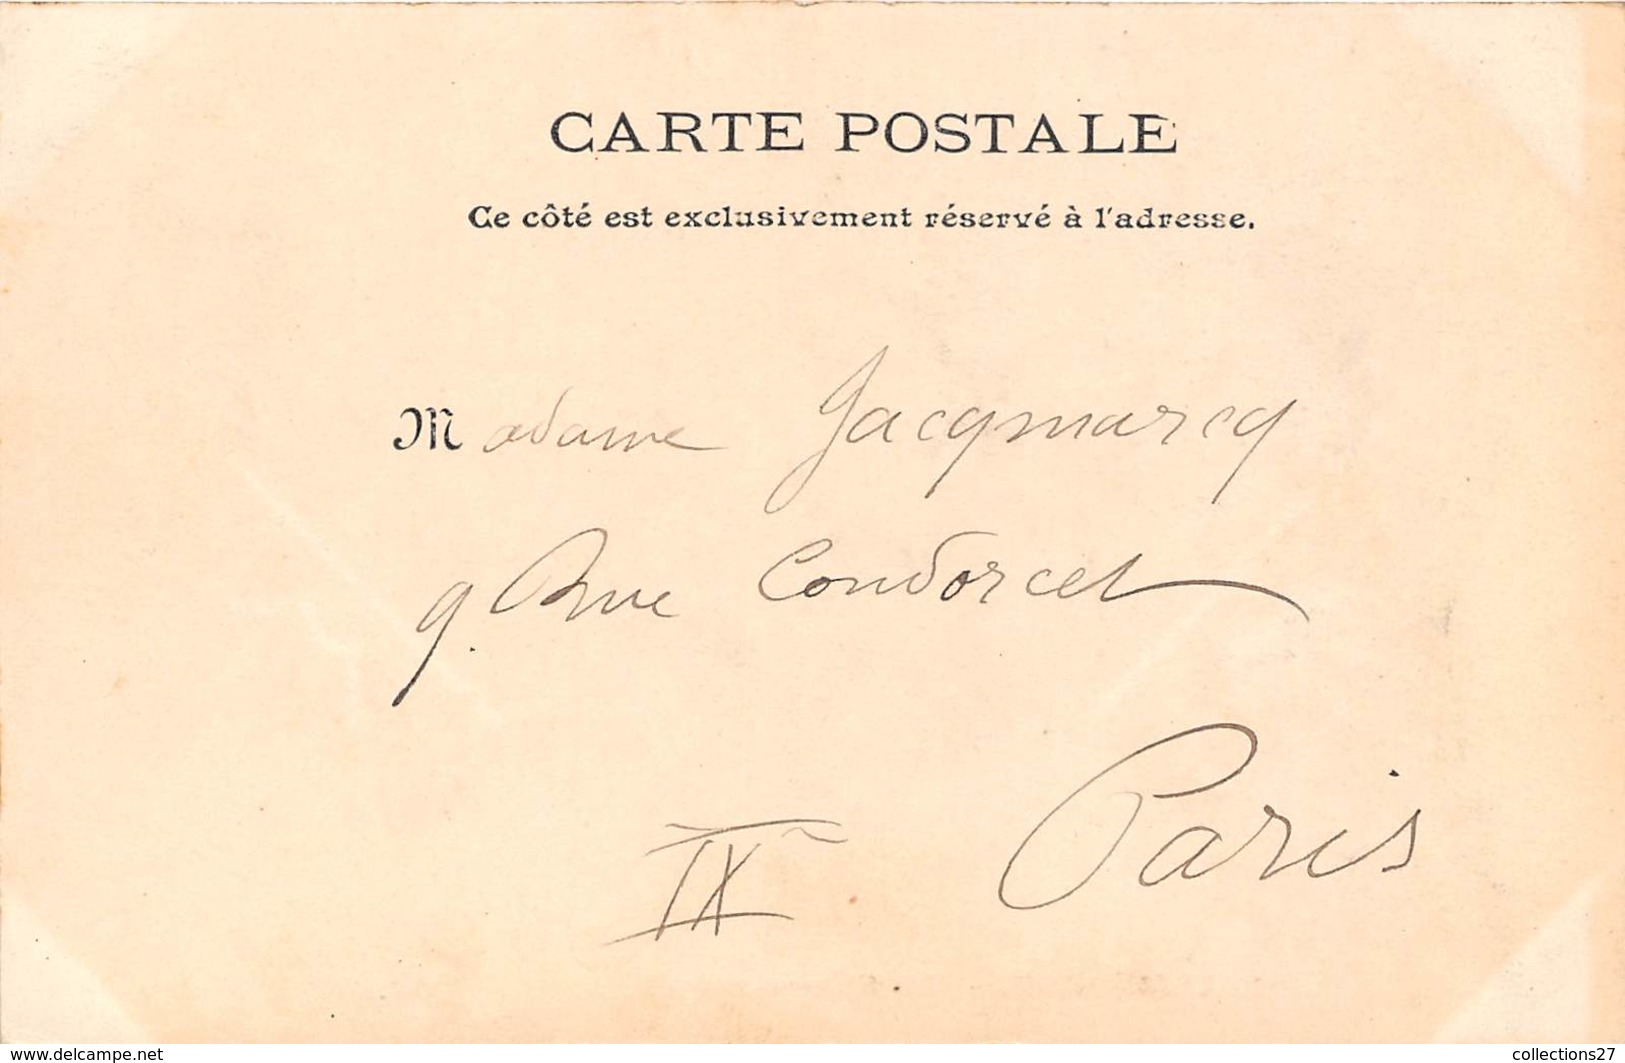 CARTE POSTALE
Ce côté est exclusivement réservé à l'adresse.
Madame Jacqmarcq
9. Rue Condorcet
Paris
IX
www.delcampe.net
collections27